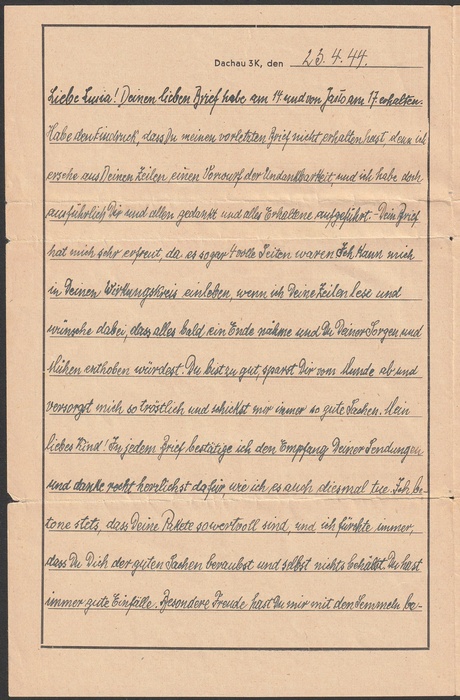 Dachau 3K, den 25.4.44.
Liebe Luisa! Deinen lieben Brief habe am 14 und von Jaśo am 17. erhalten.
Habe den Eindruck, dass Du meinen vorletzten Brief nicht erhalten hast, denn ich
ersehe aus Deinen Zeilen, einen Vorwurf der Undankbarkeit, und ich habe doch
ausführlich Dir und allen gedankt und alles Erhaltene aufgeführt. - Dein Brief
hat mich sehr erfreut, da es sogar 4 volle Seiten waren Ich kann mich
in Deinen Wirkungskreis einleben, wenn ich Deine Zeilen lese und
wünsche dabei, dass alles bald ein Ende nähme und Du Deiner Sorgen und
Mühen enthoben würdest. Du bist zu gut, sparst Dir vom Munde ab und
versorgst mich so tröstlich und schickst mir immer so gute Sachen. Mein
liebes Kind! In jedem Brief bestätige ich den Empfang Deiner Sendungen
und danke recht herzlichst dafür, wie ich es auch diesmal tue. Ich be-
tone stets, dass Deine Pakete so wertvoll sind, und ich fürchte immer,
dass Du Dich der guten Sachen beraubst und selbst nichts behältst. Du hast
immer gute Einfälle. Besondere Freude hast Du mir mit den Semmeln be-